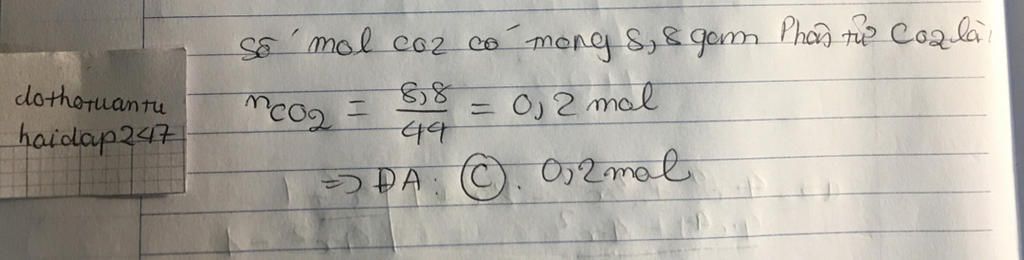 Số mol co2 có mong 8,8 gam Phân tử Co2 là:
dothotuantu
haidap247
nCO2 = 8,8/44 = 0,2 mol
=> ĐA: C. 0,2 mol